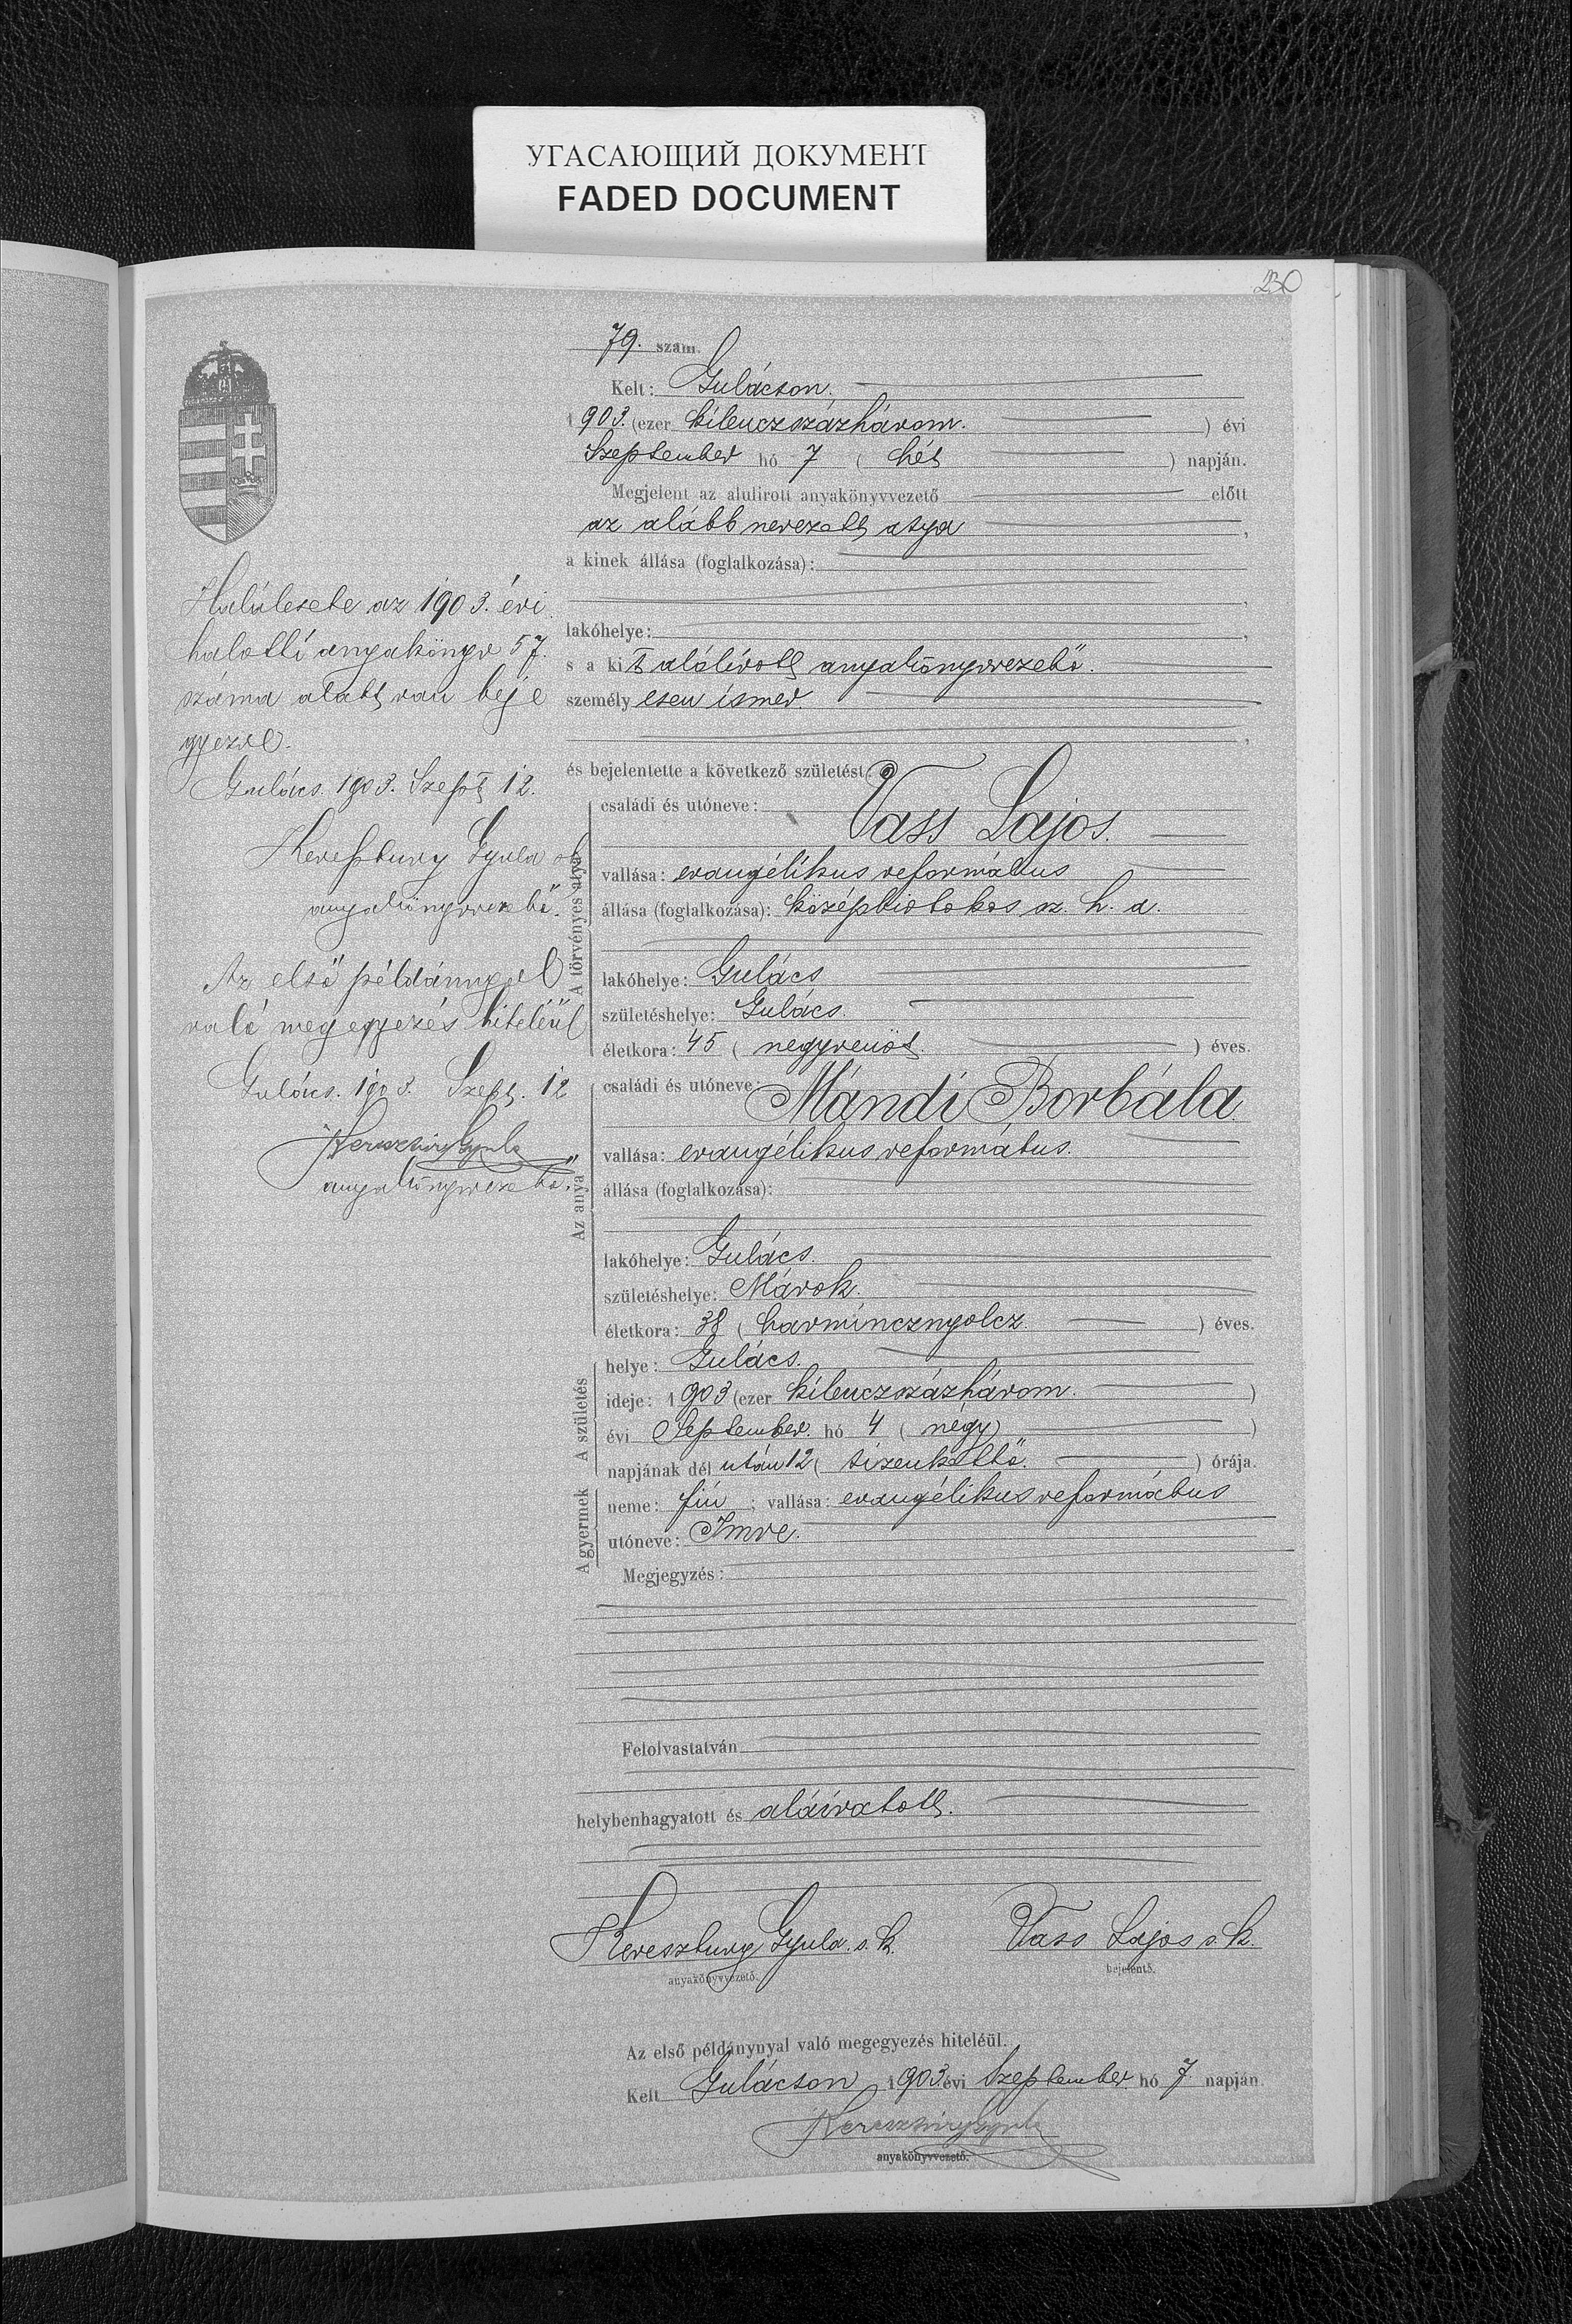 УГАСАЮЩИЙ ДОКУМЕНТ
FADED DOCUMENT
230
79. szám.
Kelt: Gulácson.
1903. (ezer kilenczszázhárom.) évi
Szeptember hó 7 (hét) napján.
Megjelent az alulirott anyakönyvvezető előtt
az alább nevezett atya,
a kinek állása (foglalkozása):
,
lakóhelye: ,
s a kit alólírott anyakönyvvezető.
személyesen ismer.
,
és bejelentette a következő születést:
A törvényes atya
családi és utóneve: Vass Lajos.
vallása: evangélikus református
állása (foglalkozása): középbirtokos sz. h. a.
lakóhelye: Gulács
születéshelye: Gulács.
életkora: 45 (negyvenöt.) éves.
Az anya
családi és utóneve: Mándi Borbála
vallása: evangélikus református.
állása (foglalkozása):
lakóhelye: Gulács.
születéshelye: Márok.
életkora: 38 (harmincznyolcz.) éves.
A születés
helye: Gulács.
ideje: 1903 (ezer kilenczszázhárom.)
évi September. hó 4 (négy)
napjának dél után 12 (tizenkettő.) órája.
A gyermek
neme: fiú; vallása: evangélikus református
utóneve: Imre.
Megjegyzés:
Felolvastatván
helybenhagyatott és aláíratott.
Keresztury Gyula s. k.
anyakönyvvezető.
Vass Lajos s. k.
bejelentő.
Az első példánynyal való megegyezés hiteléül.
Kelt Gulácson 1903 évi Szeptember hó 7 napján
Keresztury Gyula
anyakönyvvezető.
Halálesete az 1903. évi
halotti anyakönyv 57.
száma alatt van beje
gyezve.
Gulács. 1903. Szept 12.
Keresztury Gyula
anyakönyvvezető.
Az első példánnyal
való megegyezés hiteléül
Gulács. 1903 Szept. 12
Keresztury Gyula
anyakönyvvezető.